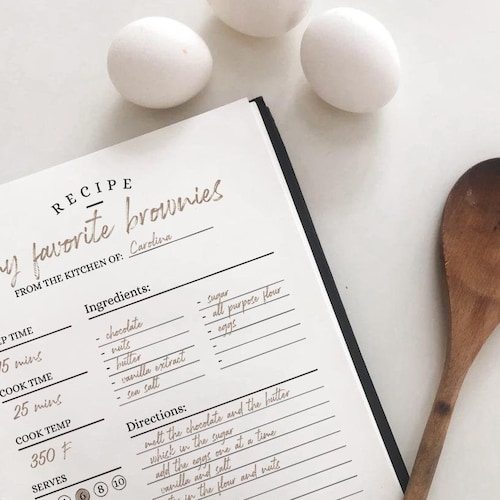 RECIPE
my favorite brownies
FROM THE KITCHEN OF: Carolina
TIME
15 mins
COOK TIME
25 mins
COOK TEMP
350 F
SERVES
6 8 10
Ingredients:
chocolate
- nuts
- butter
- vanilla extract
- sea salt
- sugar
- all purpose flour
- eggs
-
-
Directions:
melt the chocolate and the butter
whisk in the sugar
add the eggs one at a time
vanilla and salt
in the flour and nuts